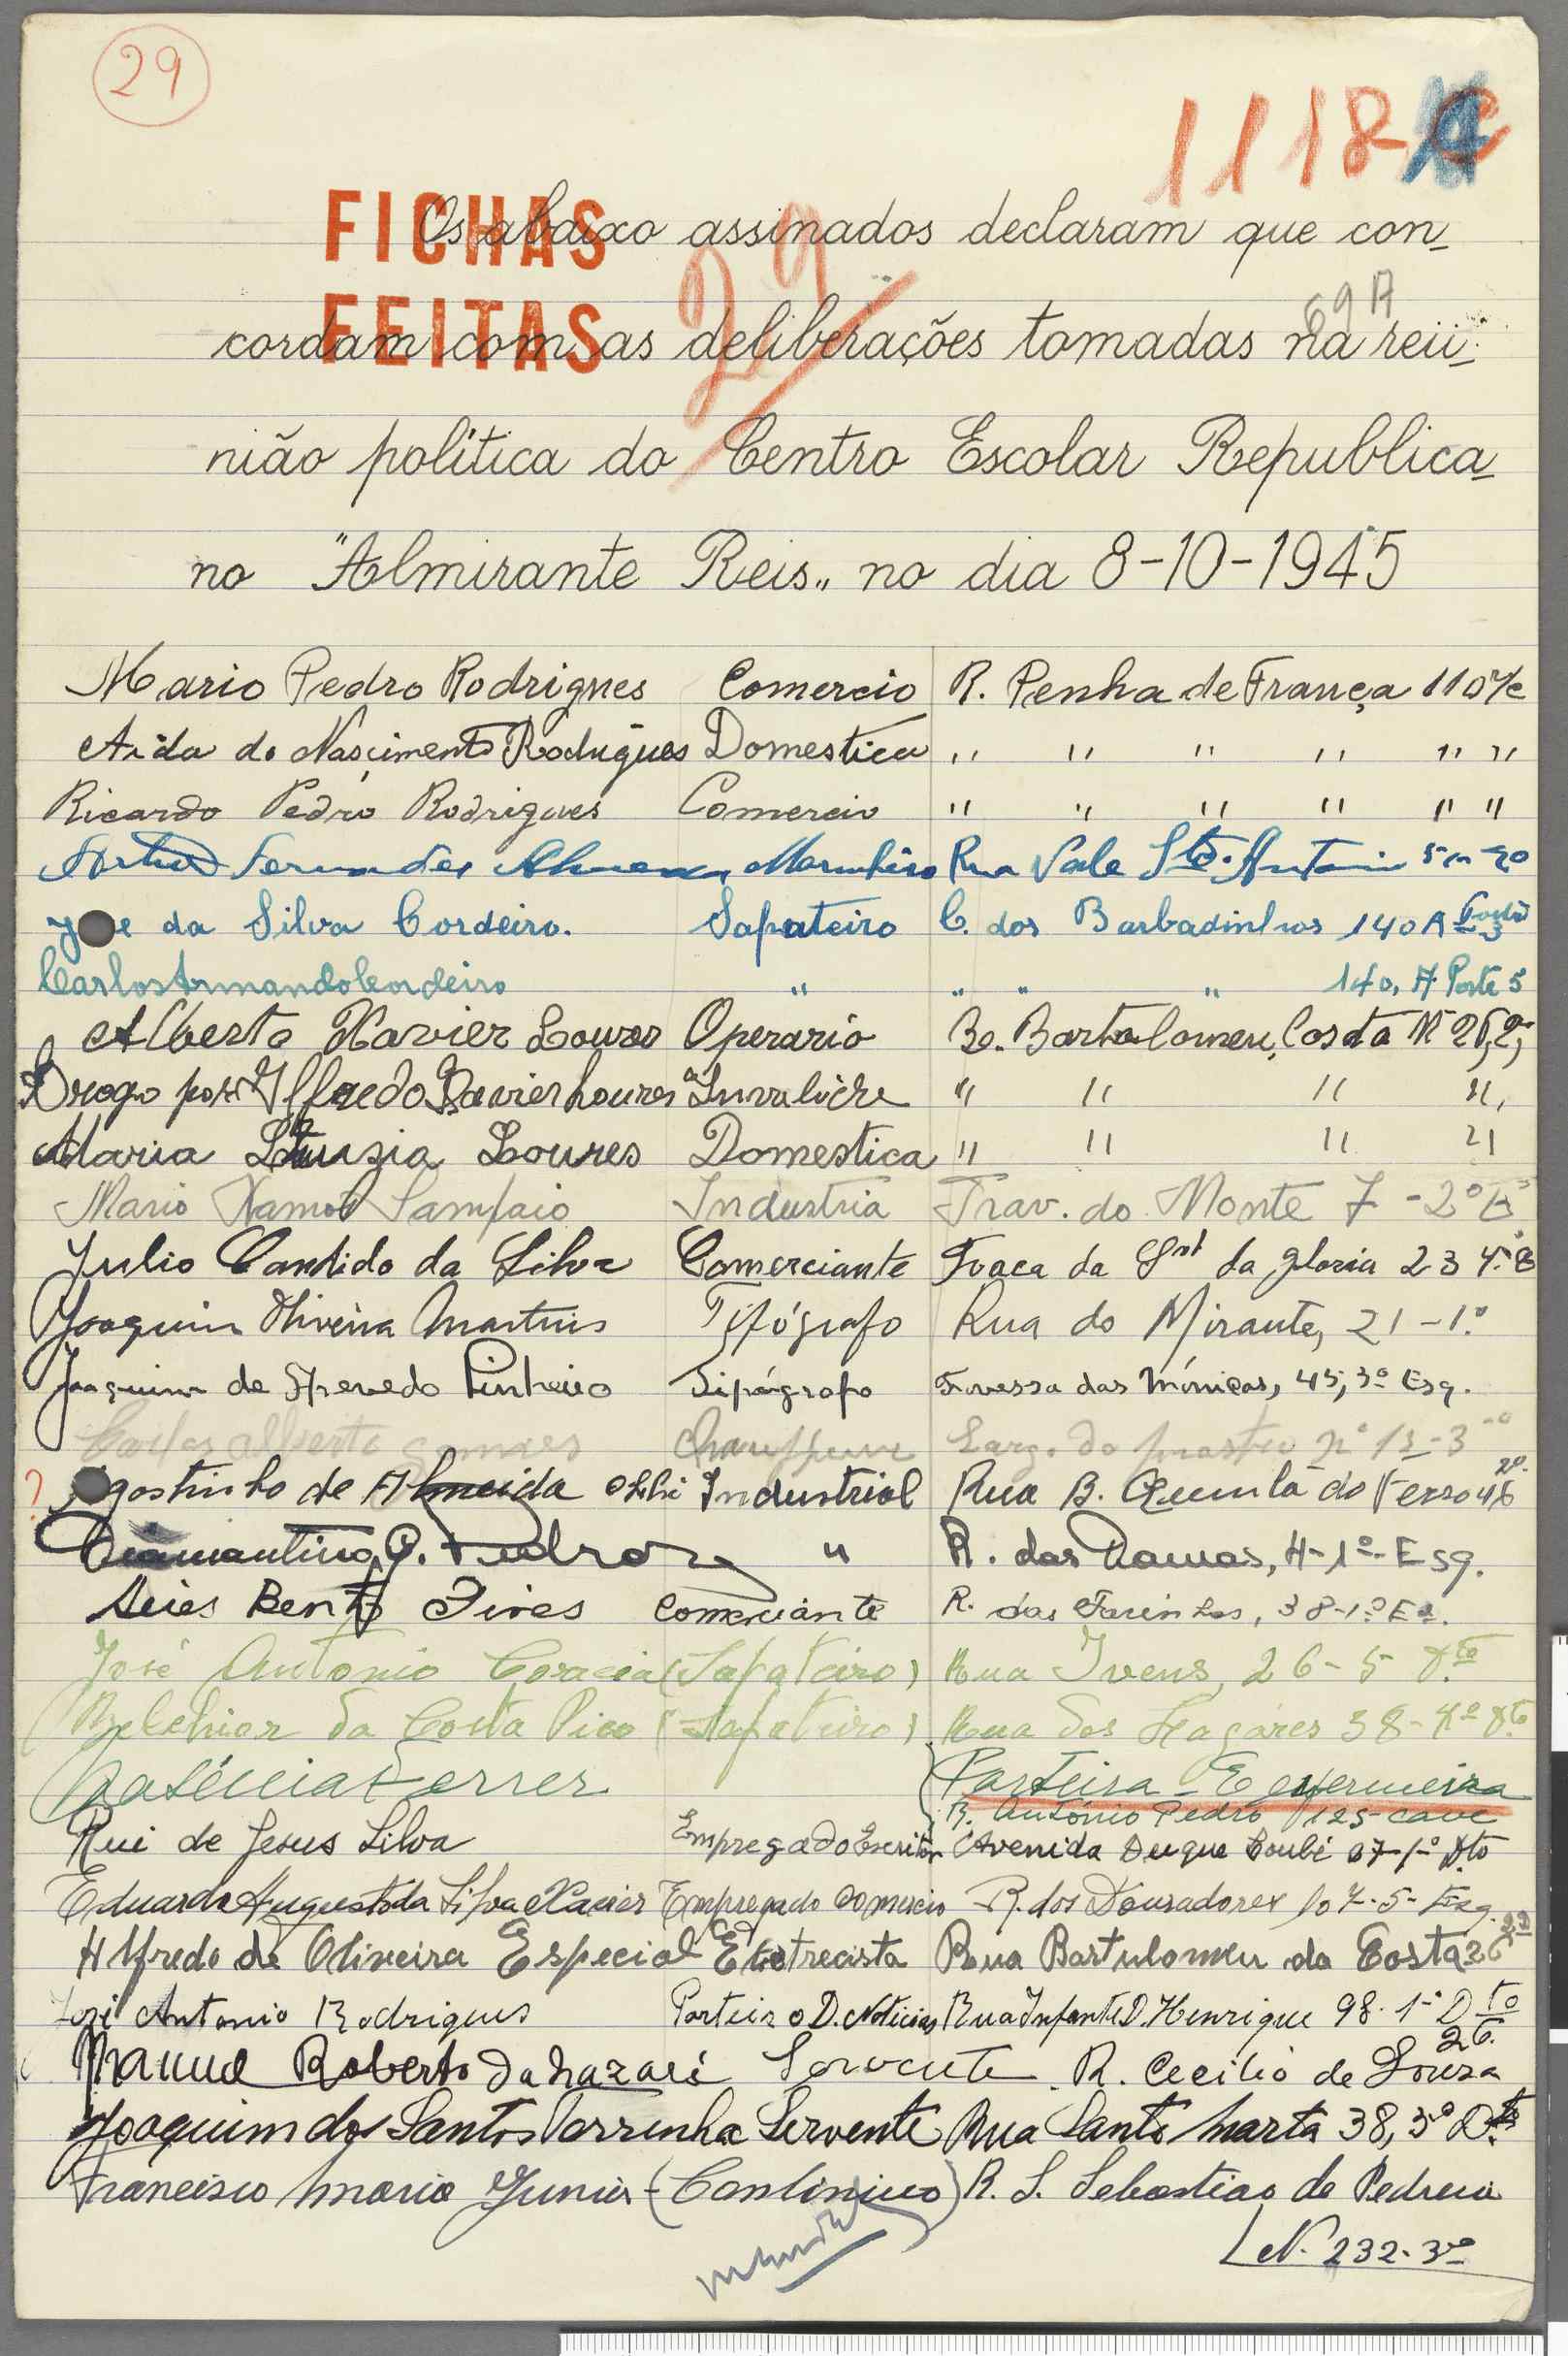 29
1118
FICHAS
FEITAS
29
69A
Os abaixo assinados declaram que con-
cordam com as deliberações tomadas na reü-
nião política do Centro Escolar Republica-
no "Almirante Reis" no dia 8-10-1945
Mario Pedro Rodrigues Comercio R. Penha de França 110 r/c
Aida do Nascimento Rodrigues Domestica " " " " " "
Ricardo Pedro Rodrigues Comercio " " " " " "
Artur Fernandes Rua Vale Sto. Antonio
da Silva Cordeiro. Sapateiro C. dos Barbadinhos 140 A
Carlos Armando Cordeiro " " " " 140, A Porta 5
Alberto Xavier Loures Operario Bartolomeu Costa
Xavier Loures " " " "
Maria Loures Domestica " " " "
Mario Ramos Sampaio Industria Trav. do Monte 7 - 2º E
Julio Candido da Silva Comerciante da Gloria 23 4º E
Joaquim Oliveira Martins Tipógrafo Rua do Mirante, 21 - 1.º
Joaquim de Azevedo Pinheiro Tipógrafo Travessa das Mónicas, 45, 3º Esq.
Carlos Alberto Gomes
Agostinho de Almeida Industrial Rua B. Quinta do Ferro
Diamantino " R. das Damas, 4-1º-Esq.
Aires Bento Pires Comerciante R. das Farinhas, 38-1º
José Antonio (Sapateiro) Rua Ivens, 26 - 5 Dto
Belchior da Costa Pico (Sapateiro) Rua dos Lagares 38-4º Dto
Ferrer Parteira - Enfermeira
R. António Pedro 125-cave
Rui de Jesus Silva Empregado Escritor Avenida Duque Loulé 1º Dto
Eduardo Augusto da Silva Xavier Empregado Comercio R. dos Douradores 107-5-Esq.
Alfredo de Oliveira Especial Eletrecista Rua Bartulomeu da Costa 26
José Antonio Rodrigues Porteiro D. Noticias Rua Infante D. Henrique 98-1º Dto
Manuel Roberto da Nazaré Servente R. Cecilio de Souza
26.
Joaquim dos Santos Varrinha Servente Rua Santa Marta 38, 3º Dto
Francisco Maria Junior (Contínuo) R. S. Sebastiao da Pedreira
N. 232-3º